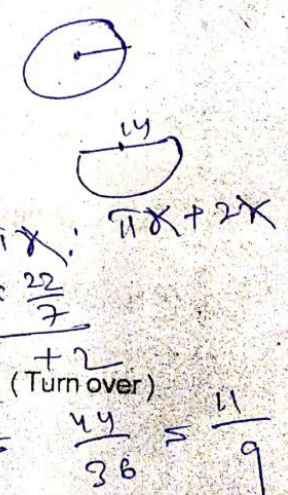 14
πr : πr + 2r
22
7
+ 2
(Turn over)
44
36
= 11
9